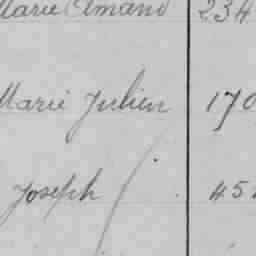 Marie Amand 234
Marie Julien 170
Joseph 45